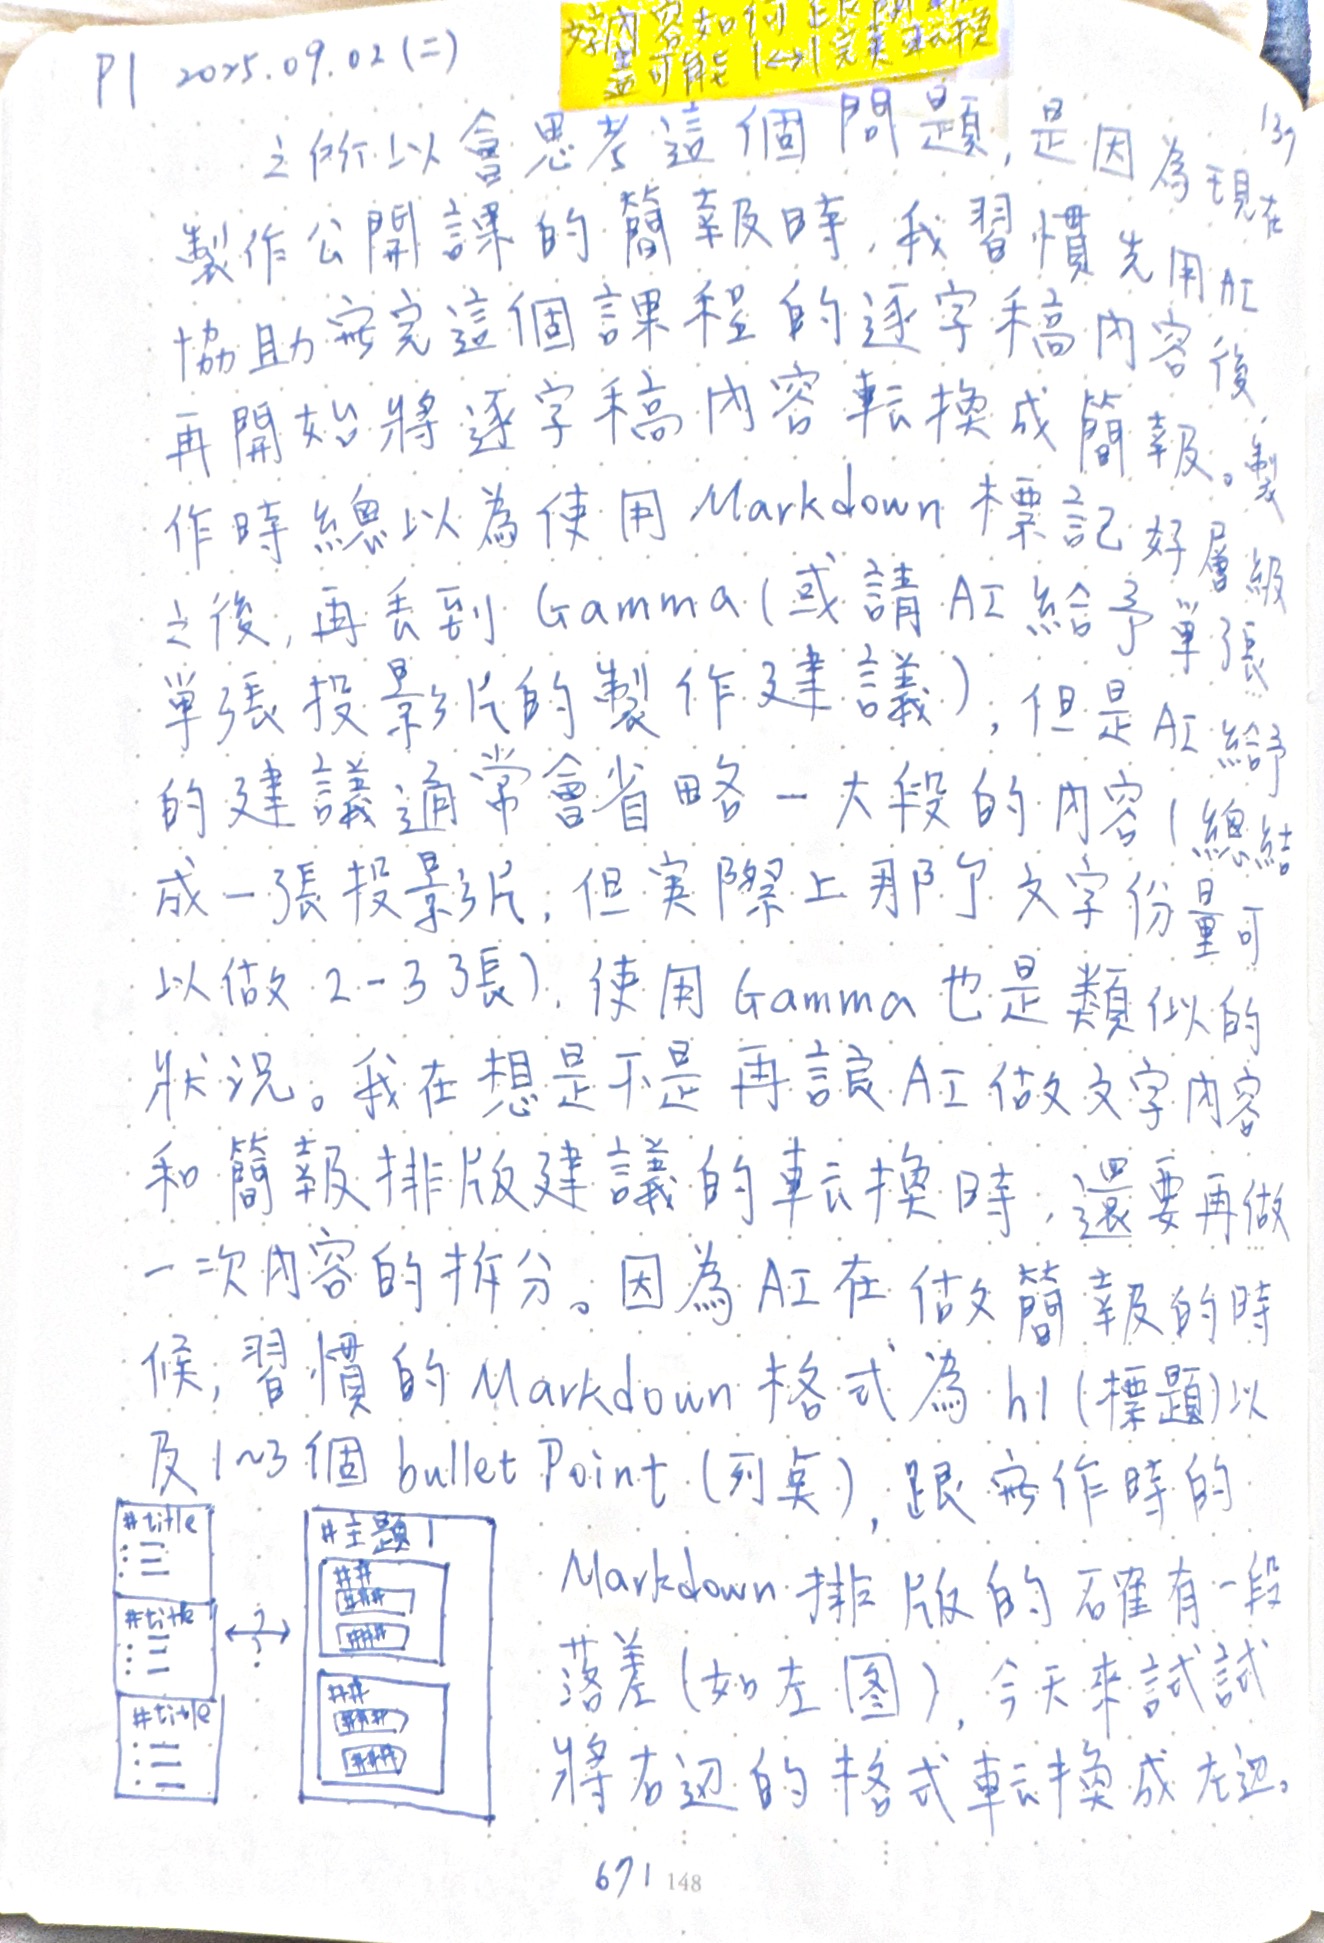 P1 2025.09.02(二)
好內容如何跟
盡可能 1↔1 完美転換
137
之所以會思考這個問題,是因為現在
製作公開課的簡報時,我習慣先用AI
協助寫完這個課程的逐字稿內容後,
再開始將逐字稿內容転換成簡報。製
作時總以為使用 Markdown 標記好層級
之後,再丟到 Gamma(或請 AI 給予單張
單張投影片的製作建議),但是 AI 給予
的建議通常會省略一大段的內容(總結
成一張投影片,但実際上那个文字份量可
以做 2-3 張),使用 Gamma 也是類似的
狀況。我在想是不是再讓 AI 做文字內容
和簡報排版建議的転換時,還要再做
一次內容的拆分。因為 AI 在做簡報的時
候,習慣的 Markdown 格式為 h1(標題)以
及 1~3 個 bullet Point (列奌),跟寫作時的
Markdown 排版的確有一段
落差(如左图),今天來試試
將右边的格式転換成左边。
#title
#title
#title
?
#主題1
##
###
###
##
###
###
671 148